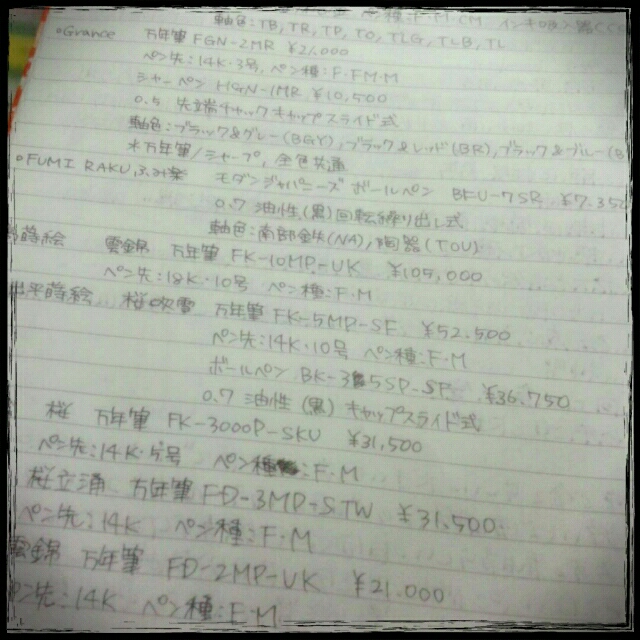 軸色:TB, TR, TP, TO, TLG, TLB, TL
○Grance 万年筆 FGN-2MR ¥21,000
ペン先:14K・3号, ペン種:F・FM・M
シャーペン HGN-1MR ¥10,500
0.5 先端チャック キャップスライド式
軸色:ブラック&グレー(BGY), ブラック&レッド(BR), ブラック&ブルー(B
*万年筆/シャープ, 全色共通
○FUMI RAKU ふみ楽 モダンジャパニーズ ボールペン BFU-7SR ¥7,350
0.7 油性(黒)回転繰り出し式
軸色:南部鉄(NA), 陶器(TOU)
蒔絵 雲錦 万年筆 FK-10MP-UK ¥105,000
ペン先:18K・10号 ペン種:F・M
平蒔絵 桜吹雪 万年筆 FK-5MP-SF ¥52,500
ペン先:14K・10号 ペン種:F・M
ボールペン BK-35SP-SF ¥36,750
0.7 油性(黒) キャップスライド式
桜 万年筆 FK-3000P-SKU ¥31,500
ペン先:14K・5号 ペン種:F・M
桜立涌 万年筆 FD-3MP-STW ¥31,500
ペン先:14K ペン種:F・M
雲錦 万年筆 FD-2MP-UK ¥21,000
ペン先:14K ペン種:F・M